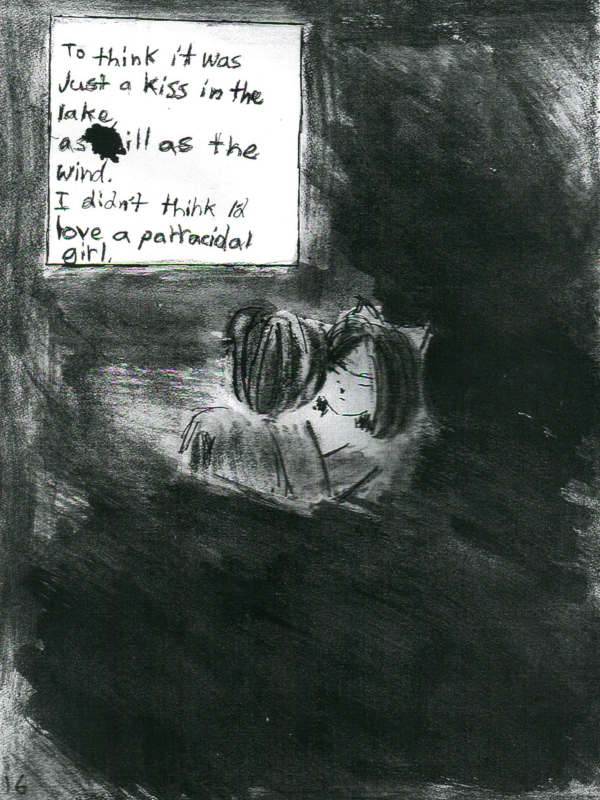 To think it was
Just a kiss in the
lake,
as ill as the
wind.
I didn't think I'd
love a patracidal
girl.
16